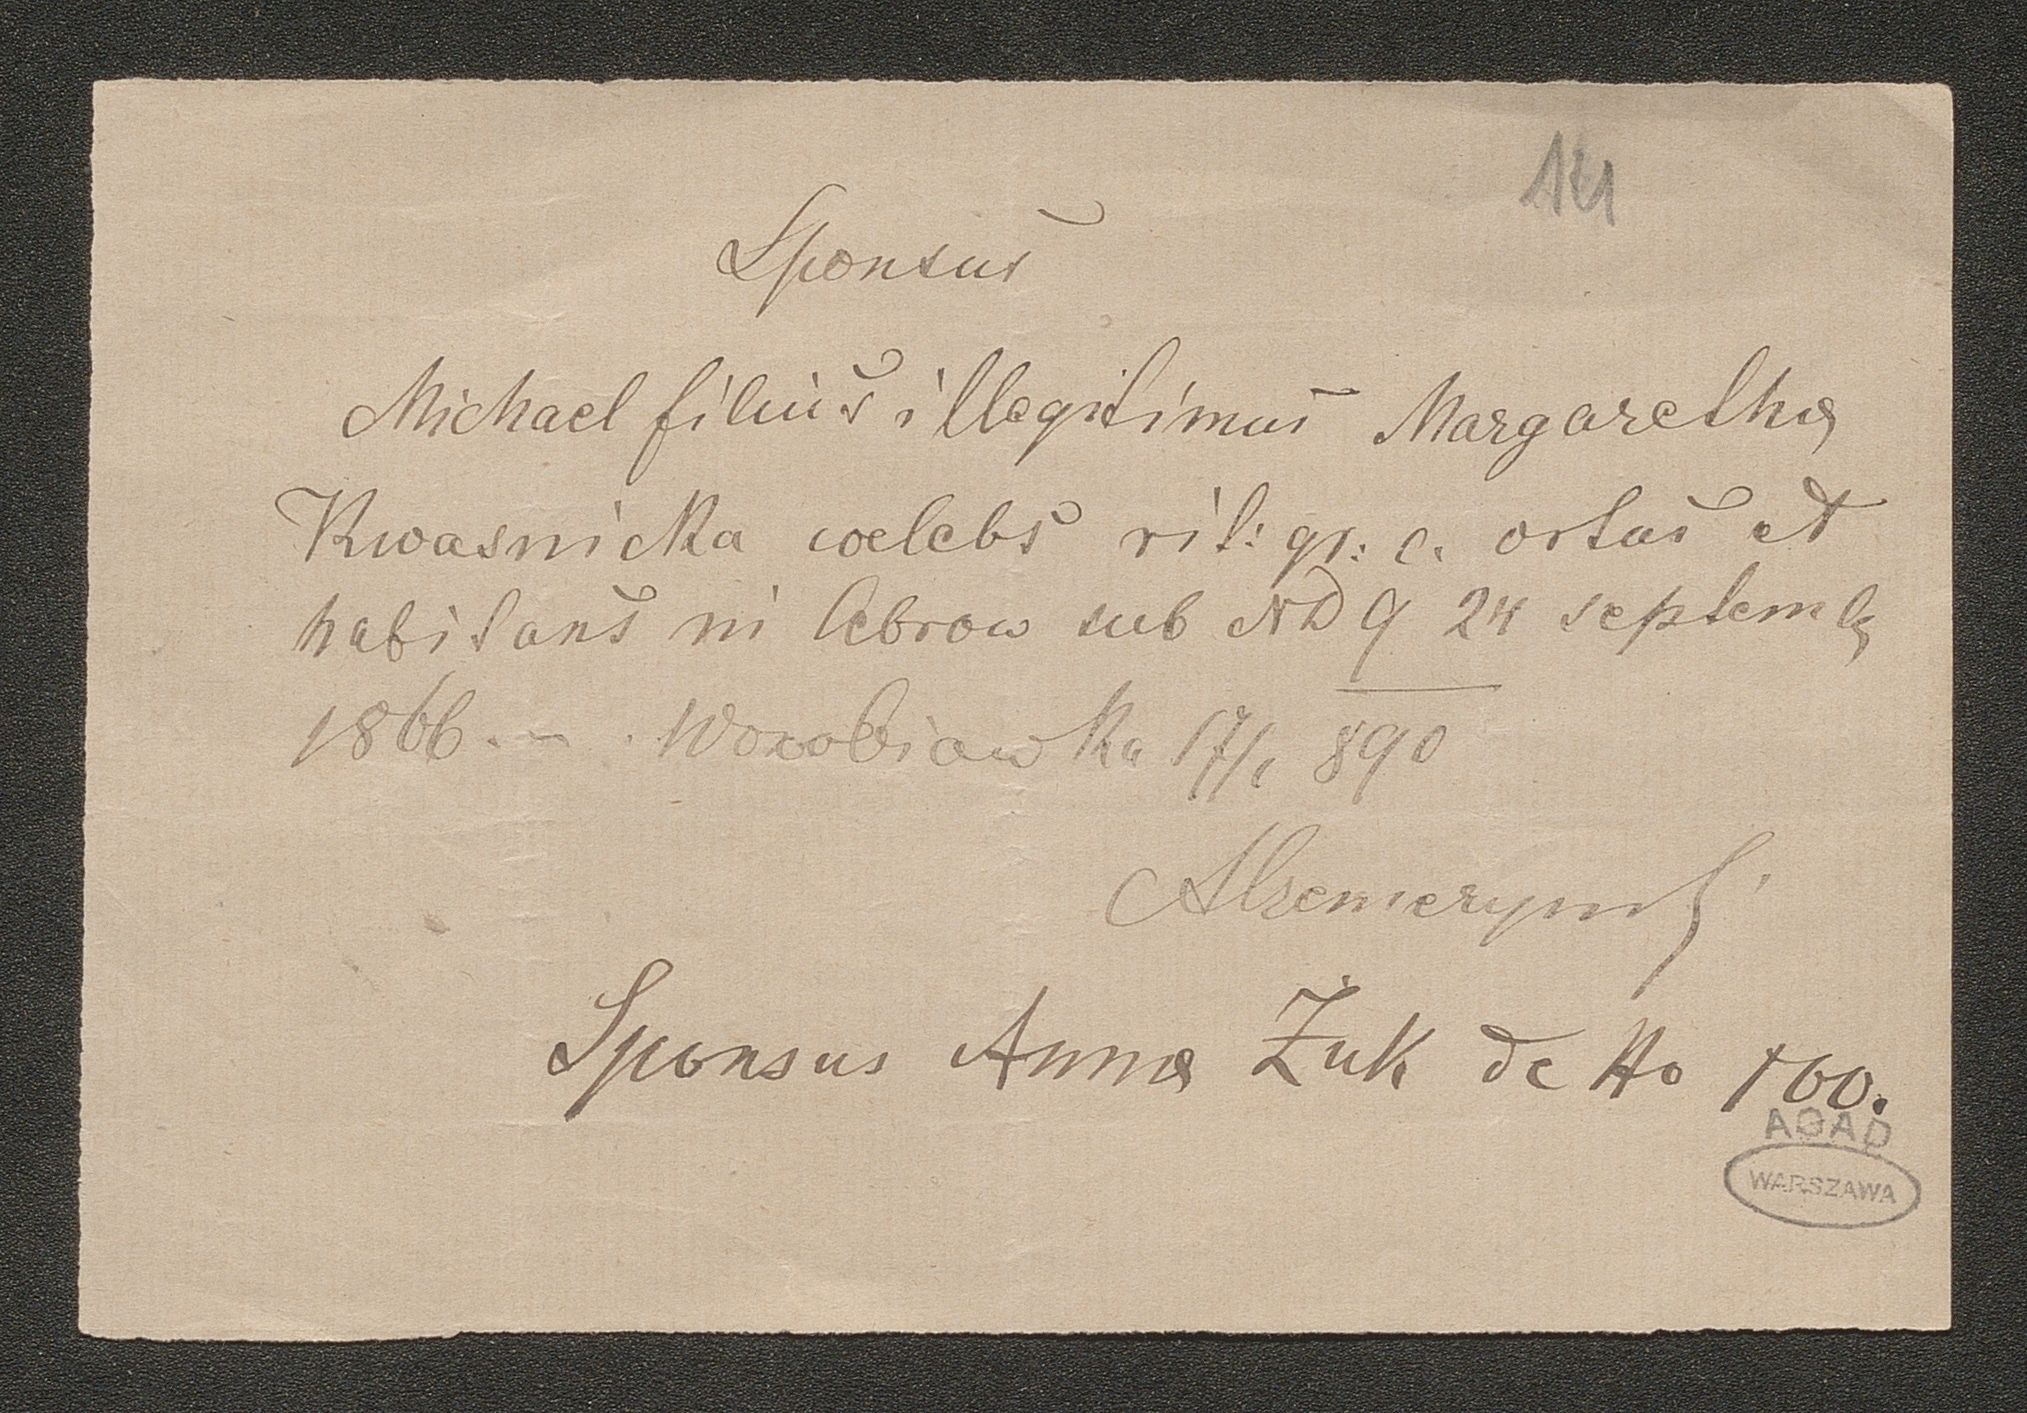 141
Sponsus
Michael filius illegitimus Margarethæ
Kwasnicka coelebs rit: gr: c. ortus et
habitans in Cebrow sub ND 9 24 septemb
1866. — Worobiowka 17/1 890
Sponsus Annæ Żuk de No 100.
AGAD
WARSZAWA